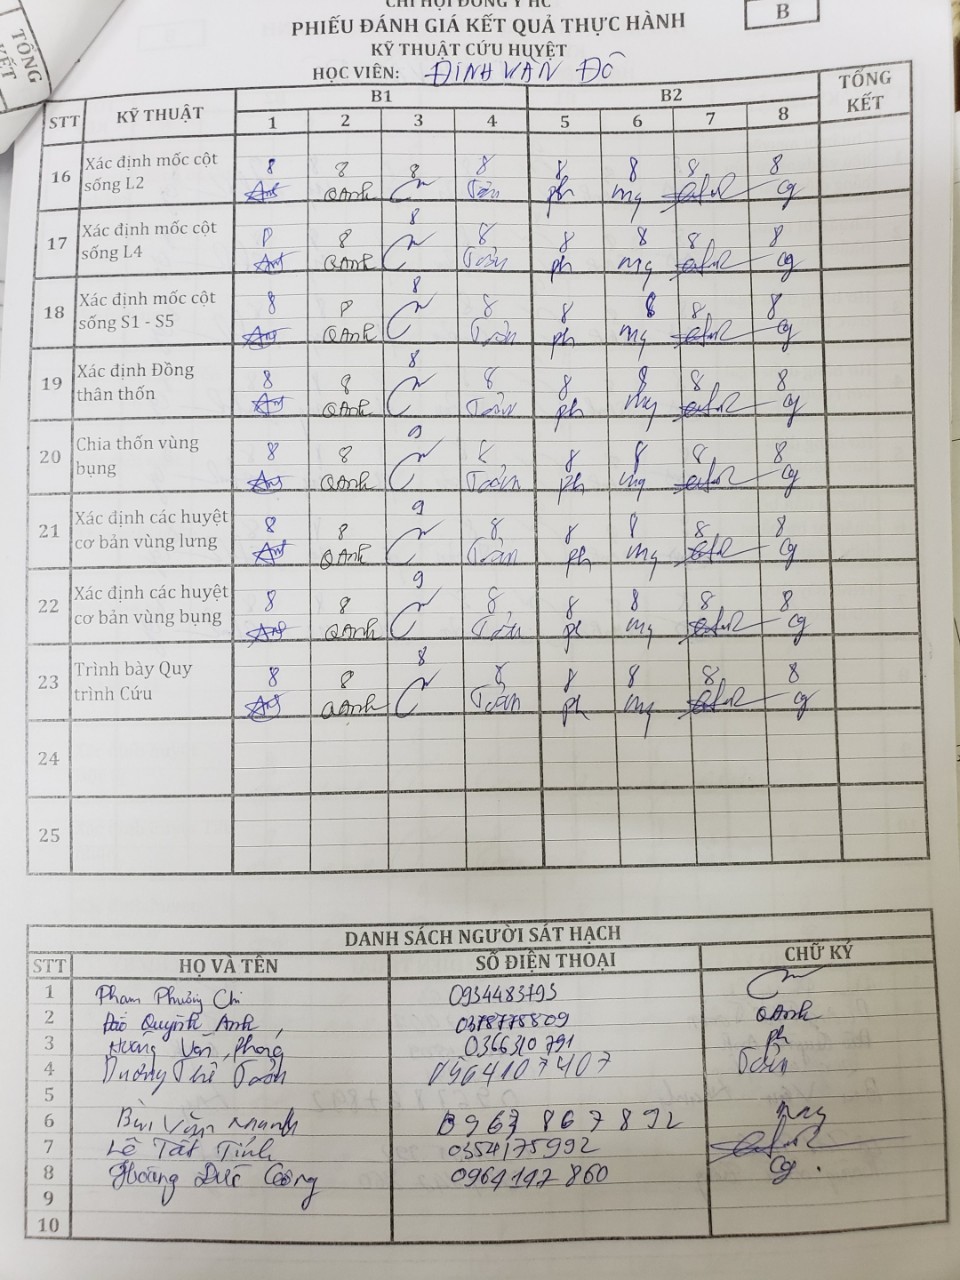 TỔNG KẾT
CHI HỘI ĐÔNG Y HC
PHIẾU ĐÁNH GIÁ KẾT QUẢ THỰC HÀNH
B
KỸ THUẬT CỨU HUYỆT
HỌC VIÊN: ĐINH VĂN ĐÔ
STT KỸ THUẬT B1 B2 TỔNG KẾT
1 2 3 4 5 6 7 8
16 Xác định mốc cột sống L2 8 8 8 8 8 8 8 8
QAnh Toản ph mg cg
17 Xác định mốc cột sống L4 8 8 8 8 8 8 8 8
QAnh Toản ph mg cg
18 Xác định mốc cột sống S1 - S5 8 8 8 8 8 8 8 8
QAnh Toản ph mg cg
19 Xác định Đồng thân thốn 8 8 8 8 8 8 8 8
QAnh Toản ph mg cg
20 Chia thốn vùng bụng 8 8 9 8 8 8 8 8
QAnh Toản ph mg cg
21 Xác định các huyệt cơ bản vùng lưng 8 8 9 8 8 8 8 8
QAnh Toản ph mg cg
22 Xác định các huyệt cơ bản vùng bụng 8 8 9 8 8 8 8 8
QAnh Toản ph mg cg
23 Trình bày Quy trình Cứu 8 8 8 8 8 8 8 8
QAnh Toản ph mg cg
24
25
DANH SÁCH NGƯỜI SÁT HẠCH
STT HỌ VÀ TÊN SỐ ĐIỆN THOẠI CHỮ KÝ
1 Phạm Phương Chi 0934483793
2 Đào Quỳnh Anh 0378778809 QAnh
3 Hoàng Văn Phong 0366310791 ph
4 Dương Thị Toản 0964107407 Toản
5
6 Bùi Văn Mạnh 0967867892 mg
7 Lê Tất Tính 0354175992
8 Hoàng Đức Công 0964147860 cg
9
10